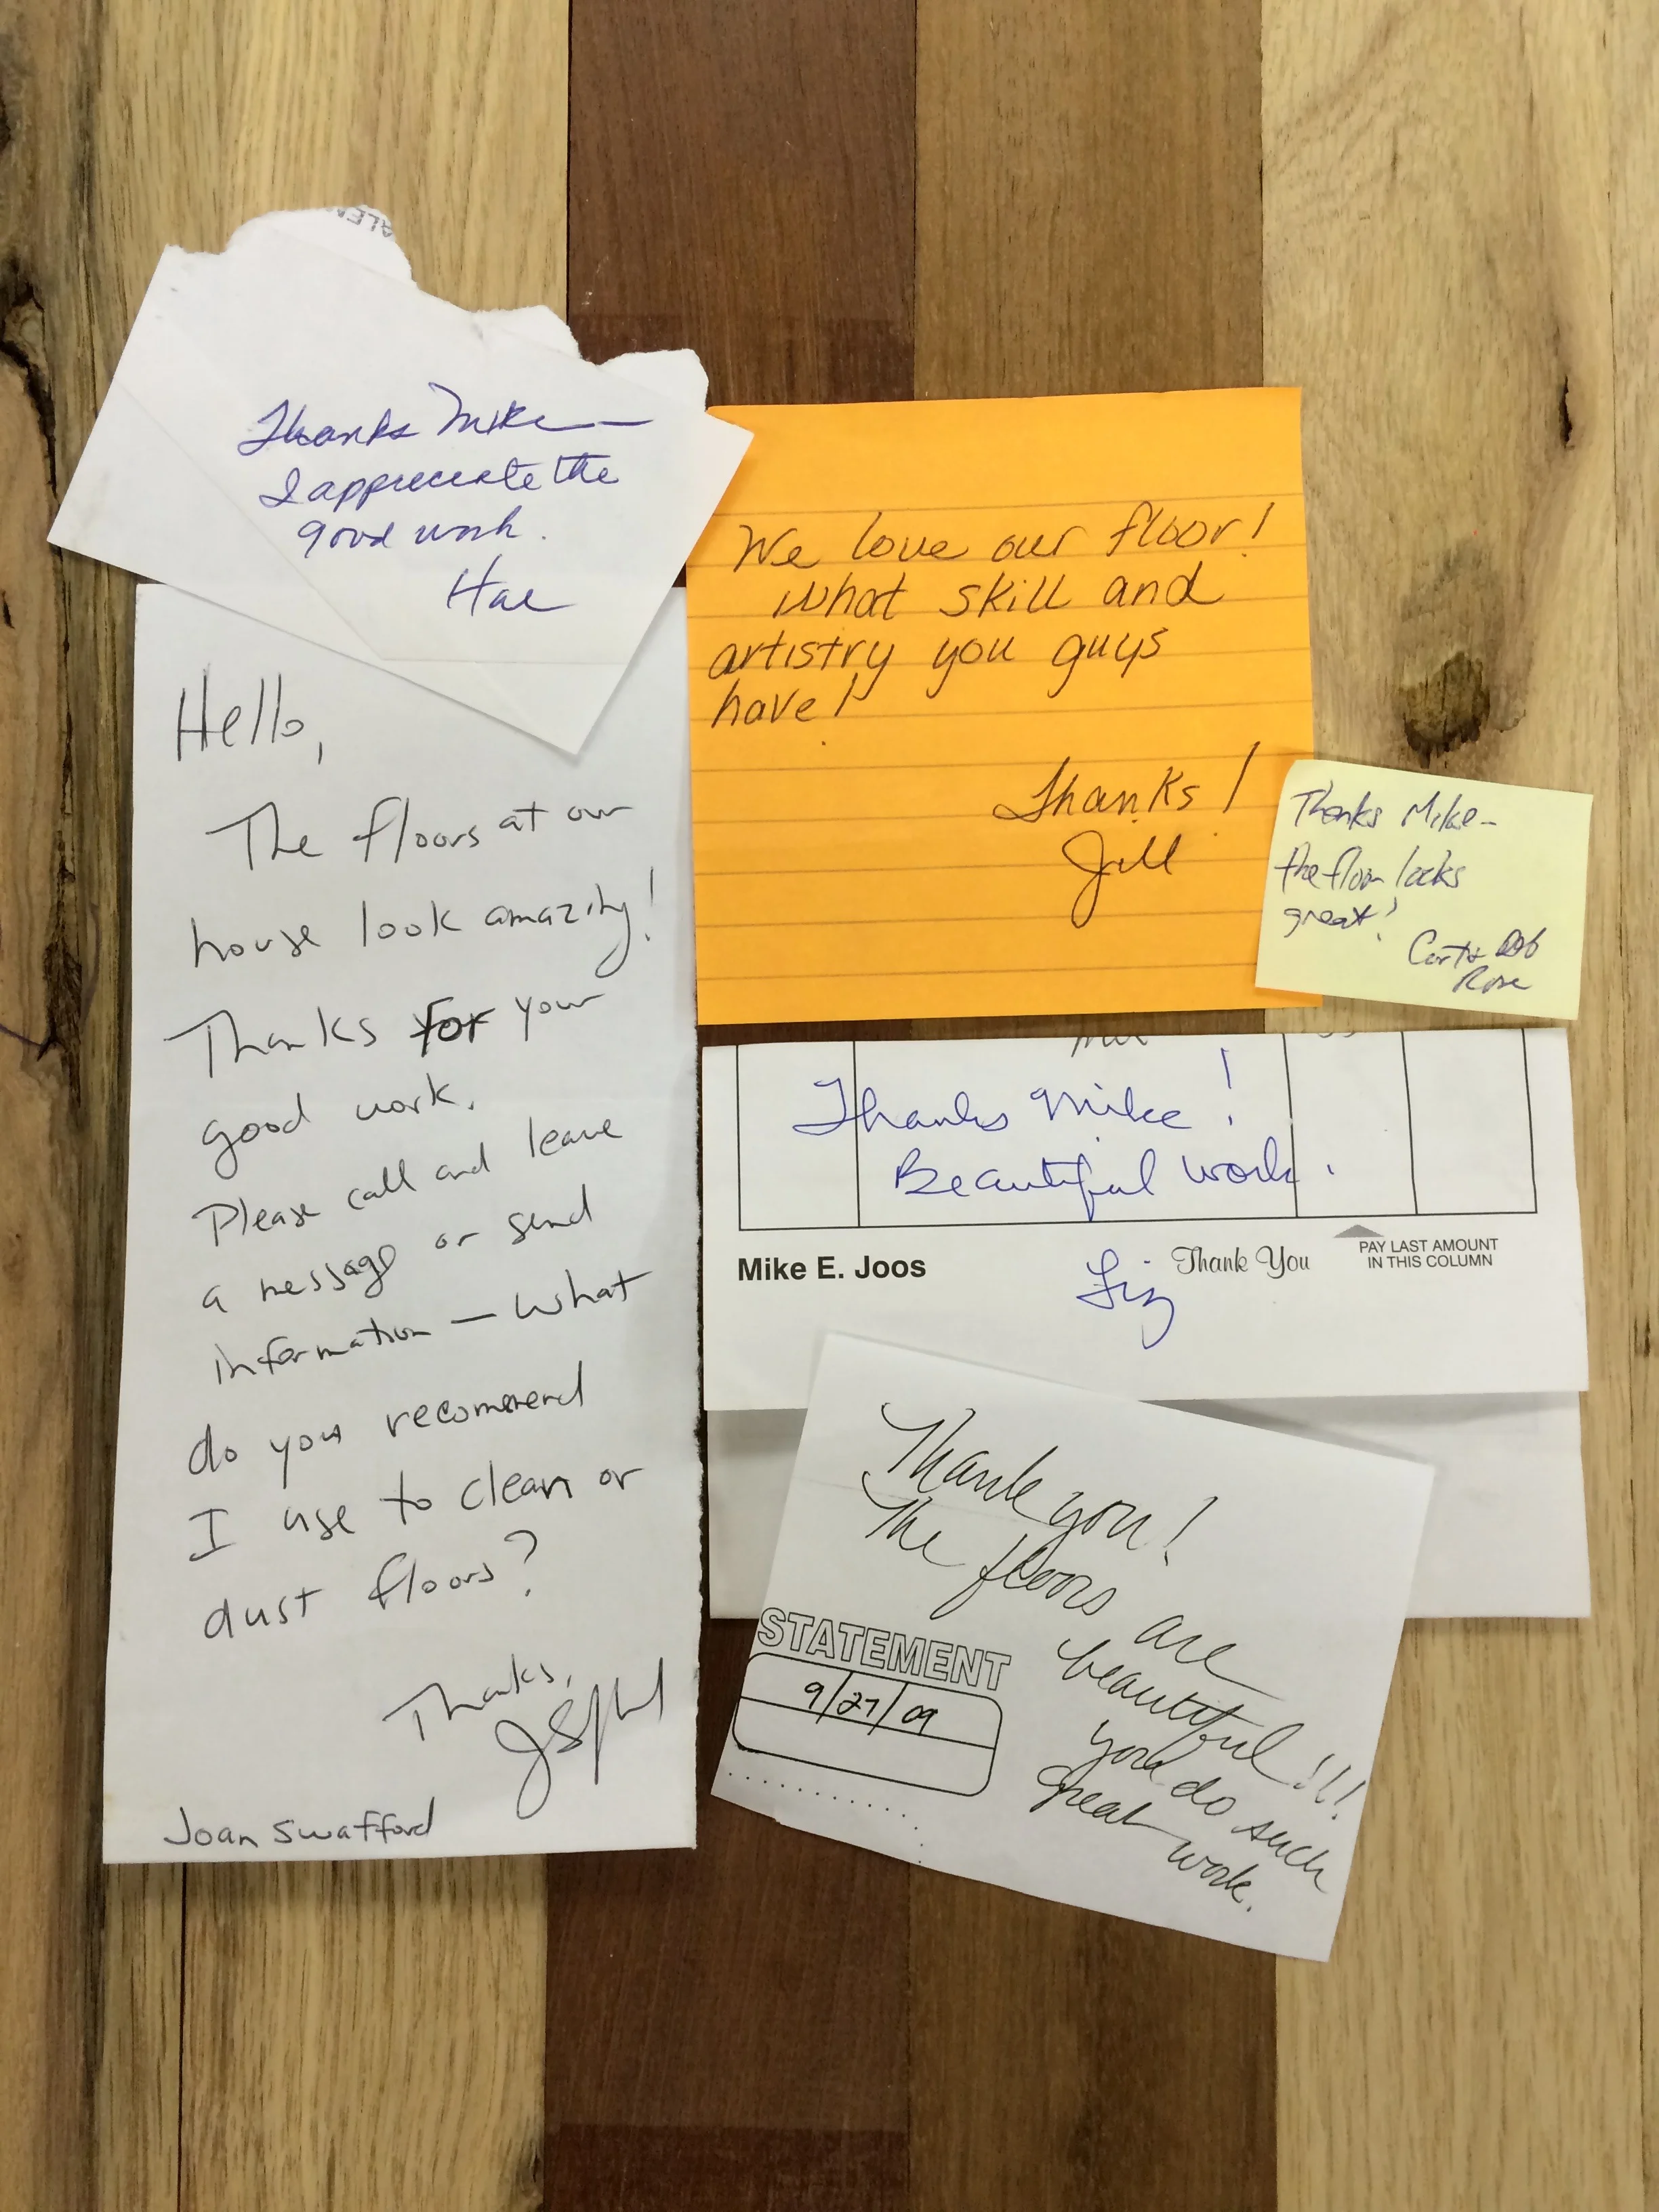 Thanks Mike —
I appreciate the
good work.
Hal
Hello,
The floors at our
house look amazing!
Thanks for your
good work.
Please call and leave
a message or send
information — what
do you recommend
I use to clean or
dust floors?
Thanks,
Joan Swafford
We love our floor!
What skill and
artistry you guys
have!
Thanks!
Jill
Thanks Mike -
the floor looks
great!
Rose
Thanks Mike!
Beautiful work.
Mike E. Joos
Thank You
PAY LAST AMOUNT
IN THIS COLUMN
Liz
Thank you!
The floors are
beautiful!!!
you do such
great work.
STATEMENT
9/27/09